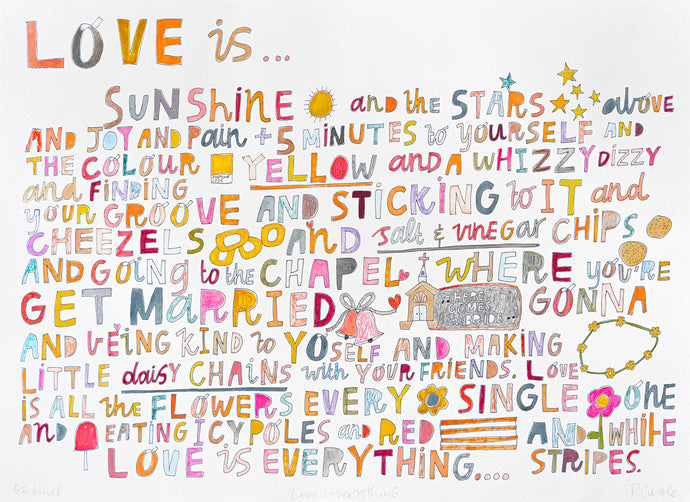 LOVE is...
SUNSHINE and the STARS above
AND JOY AND Pain + 5 MINUTES to yOURSELF AND
THE COLOUR YELLOW and A WHIZZY DIZZY
and FINDING
yOUR GROOVE AND STICKING to IT and
CHEEZELS and salt & vinegar CHIPS
AND GOING to the CHAPEL WHERE yOU'RE
GET MARRIED HERE COMES THE BRIDE GONNA
AND bEING KIND to YOSELF AND MAKING
LITTLE daisy CHAINS with YOUR FRIENDS. LOVE
IS ALL the FLOWERS EVERY SINGLE ONE
AND EATING ICY POLES and RED AND WHITE
LOVE iS EVERYTHING.... STRIPES.
Love is Everything
R Castle